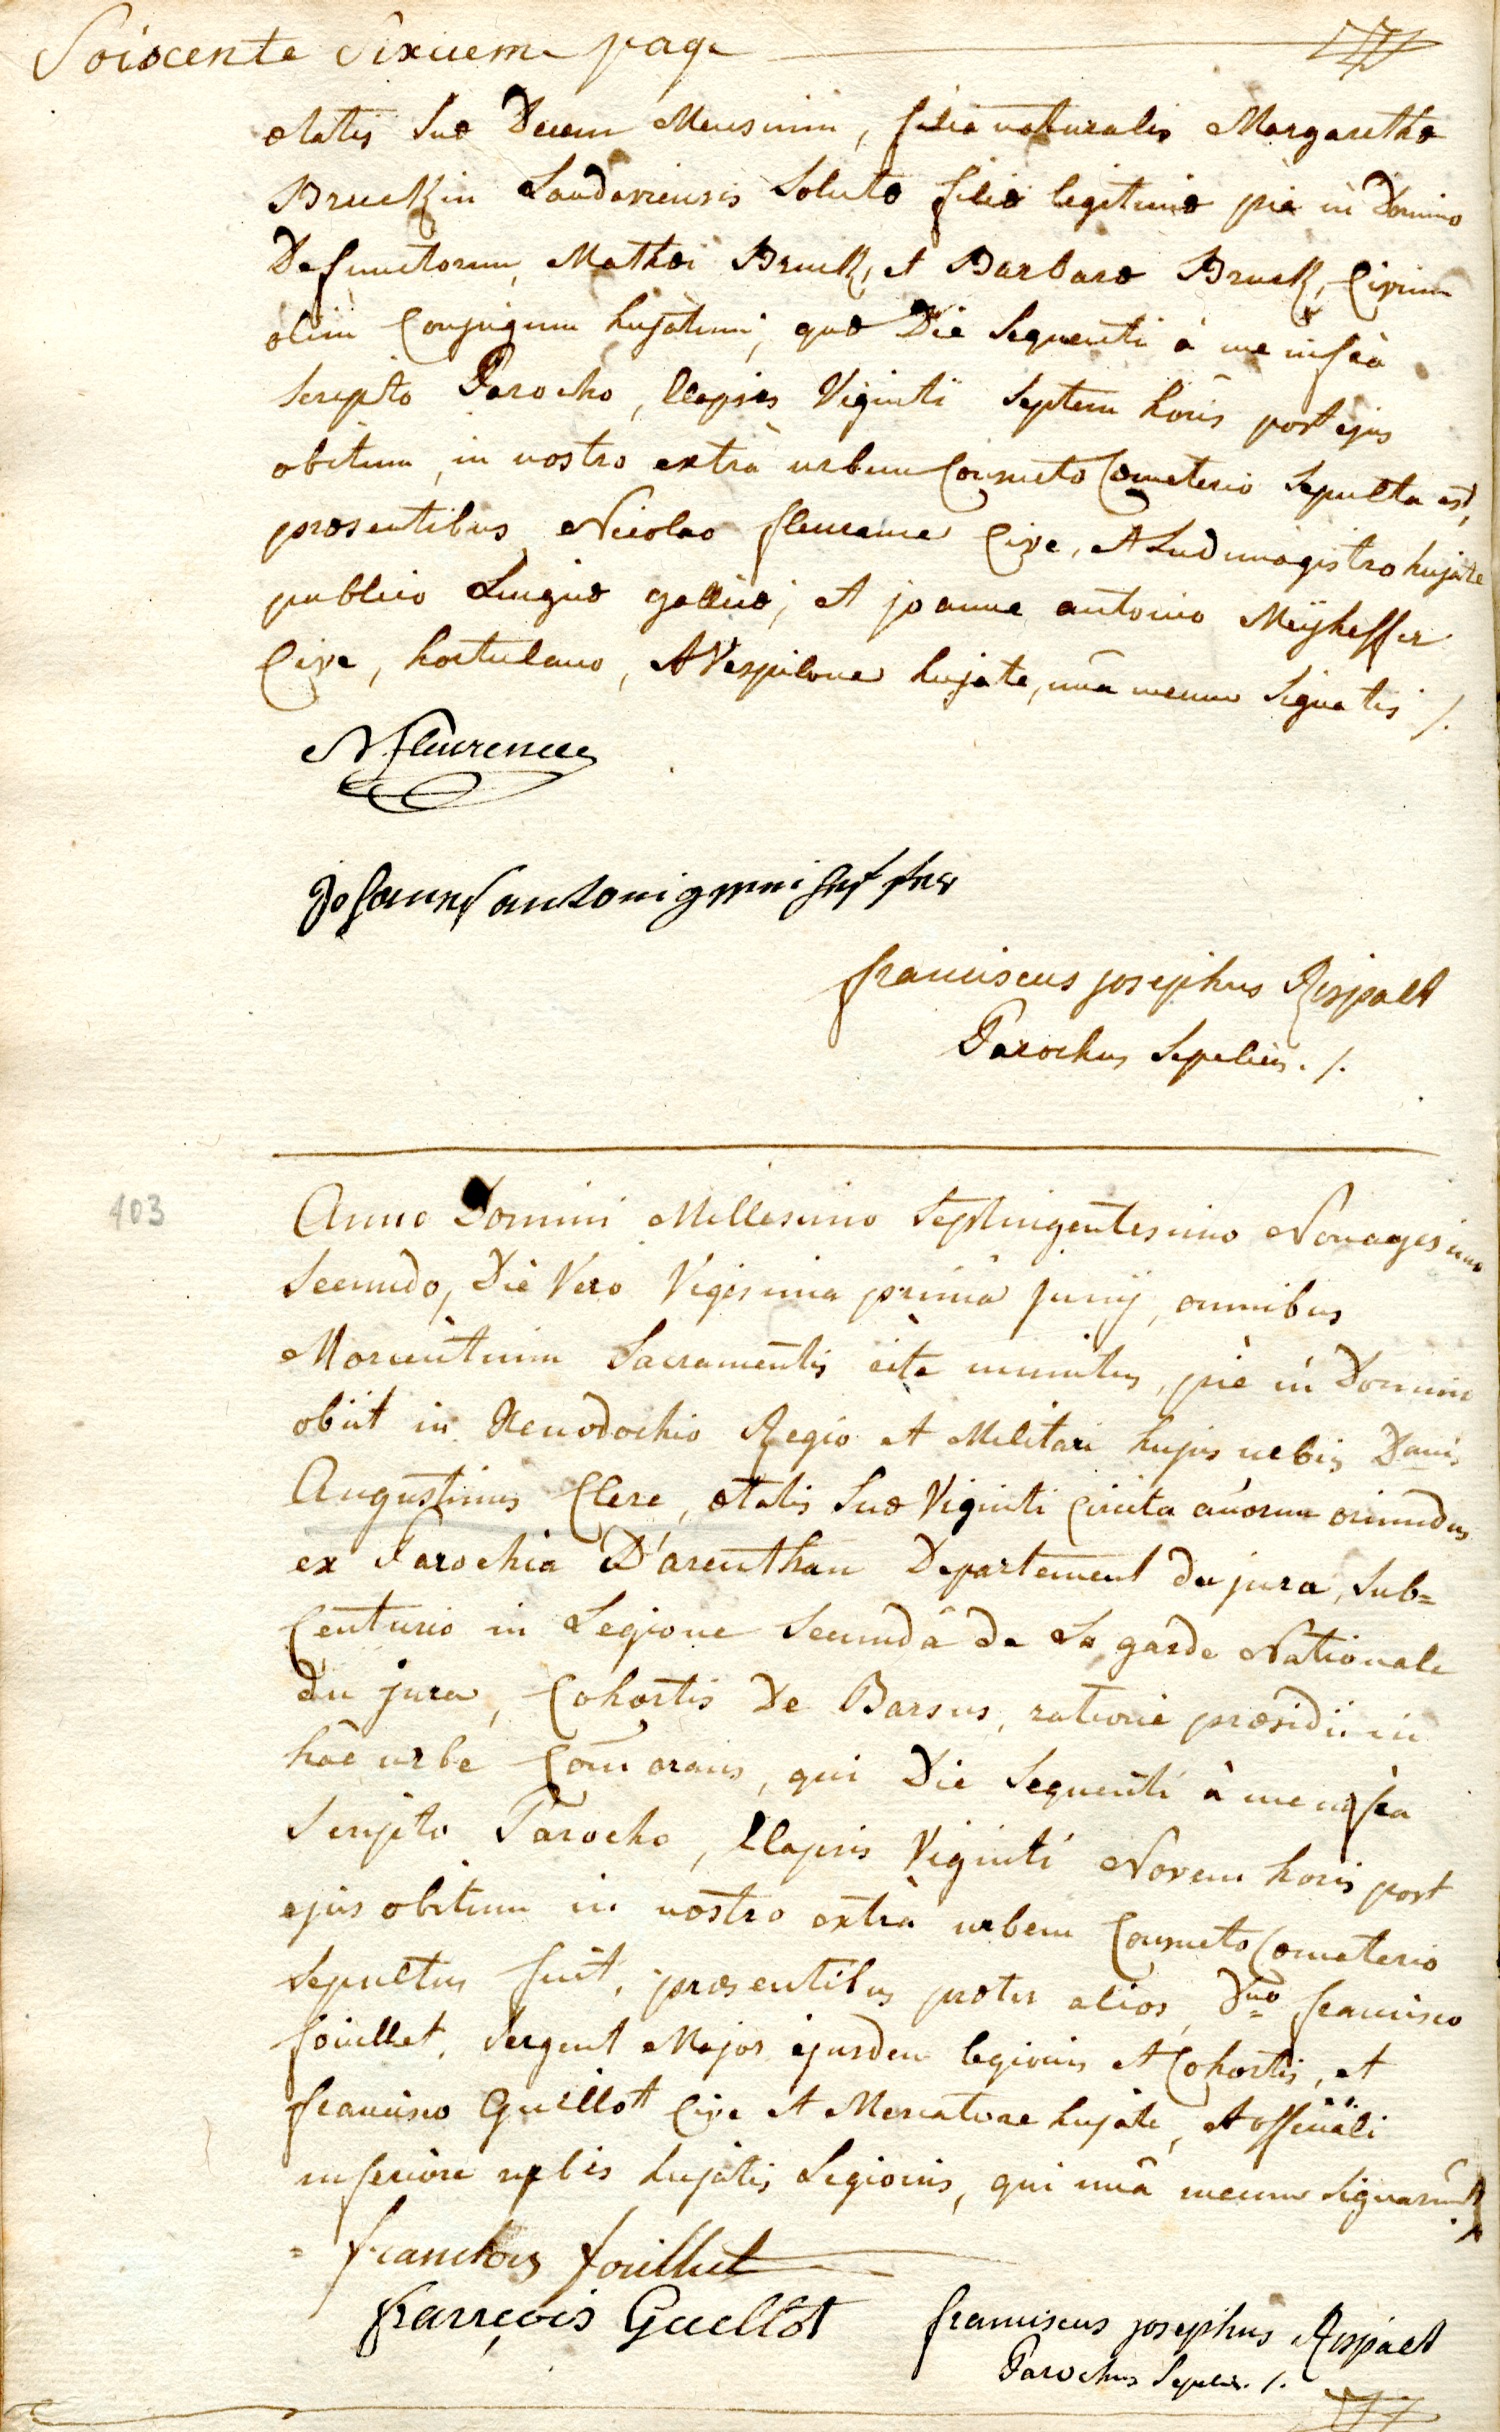 Soixcente Sixiem page
ætatis suæ Decem Mensium, filia naturalis Margarethæ
Bruckin Landaviensis solutæ filiæ legitimæ piè in Domino
Defunctorum, Mathæi Bruck, et Barbaræ Bruck, Civium
olim Conjugum hujatum; quæ Die sequenti à me infrà
scripto Parocho, Elapsis Viginti septem horis post ejus
obitum, in nostro extrà urbem Consueto Cœmeterio sepulta est,
præsentibus Nicolao fleurence Cive, et Ludimagistro hujate
publico Linguæ gallicæ, et joanne antonio Meÿheffer
Cive, hortulano, et Vespilone hujate, unà mecum signatis /.
N fleurence
Johannes antonig meiheffer
franciscus josephus Rispalt
Parochus Sepeliens ./.
403
Anno Domini Millesimo Septingentesimo Nonagesimo
Secundo, Die Vero Vigesima primâ junij, omnibus
Morientium Sacramentis ritè munitus, piè in Domino
obiit in Xenodochio Regio et Militari hujus urbis Dnus
Augustinus Clerc, ætatis suæ Viginti Circita anorum oriundus
ex Parochia D'arenthan Departement du jura, sub=
Centurio in Legione Secundâ de La garde Nationale
du jura, Cohortis De Barsus, ratione præsidii in
hâc urbe Comorans, qui Die sequenti à me infra
Scripto Parocho, Elapsis Viginti Novem horis post
ejus obitum in nostro extrà urbem Consueto Cœmeterio
sepultus fuit, præsentibus præter alios, Dno francisco
foüillet, sergent Major ejusdem legionis et Cohortis, et
francisco Guillot Cive et Mercatore hujate, et officiali
inferiore urbis hujatis Legionis, qui unà mecum signarunt
francois fouillet
françois Guellot
franciscus josephus Rispalt
Parochus Sepeliens ./.